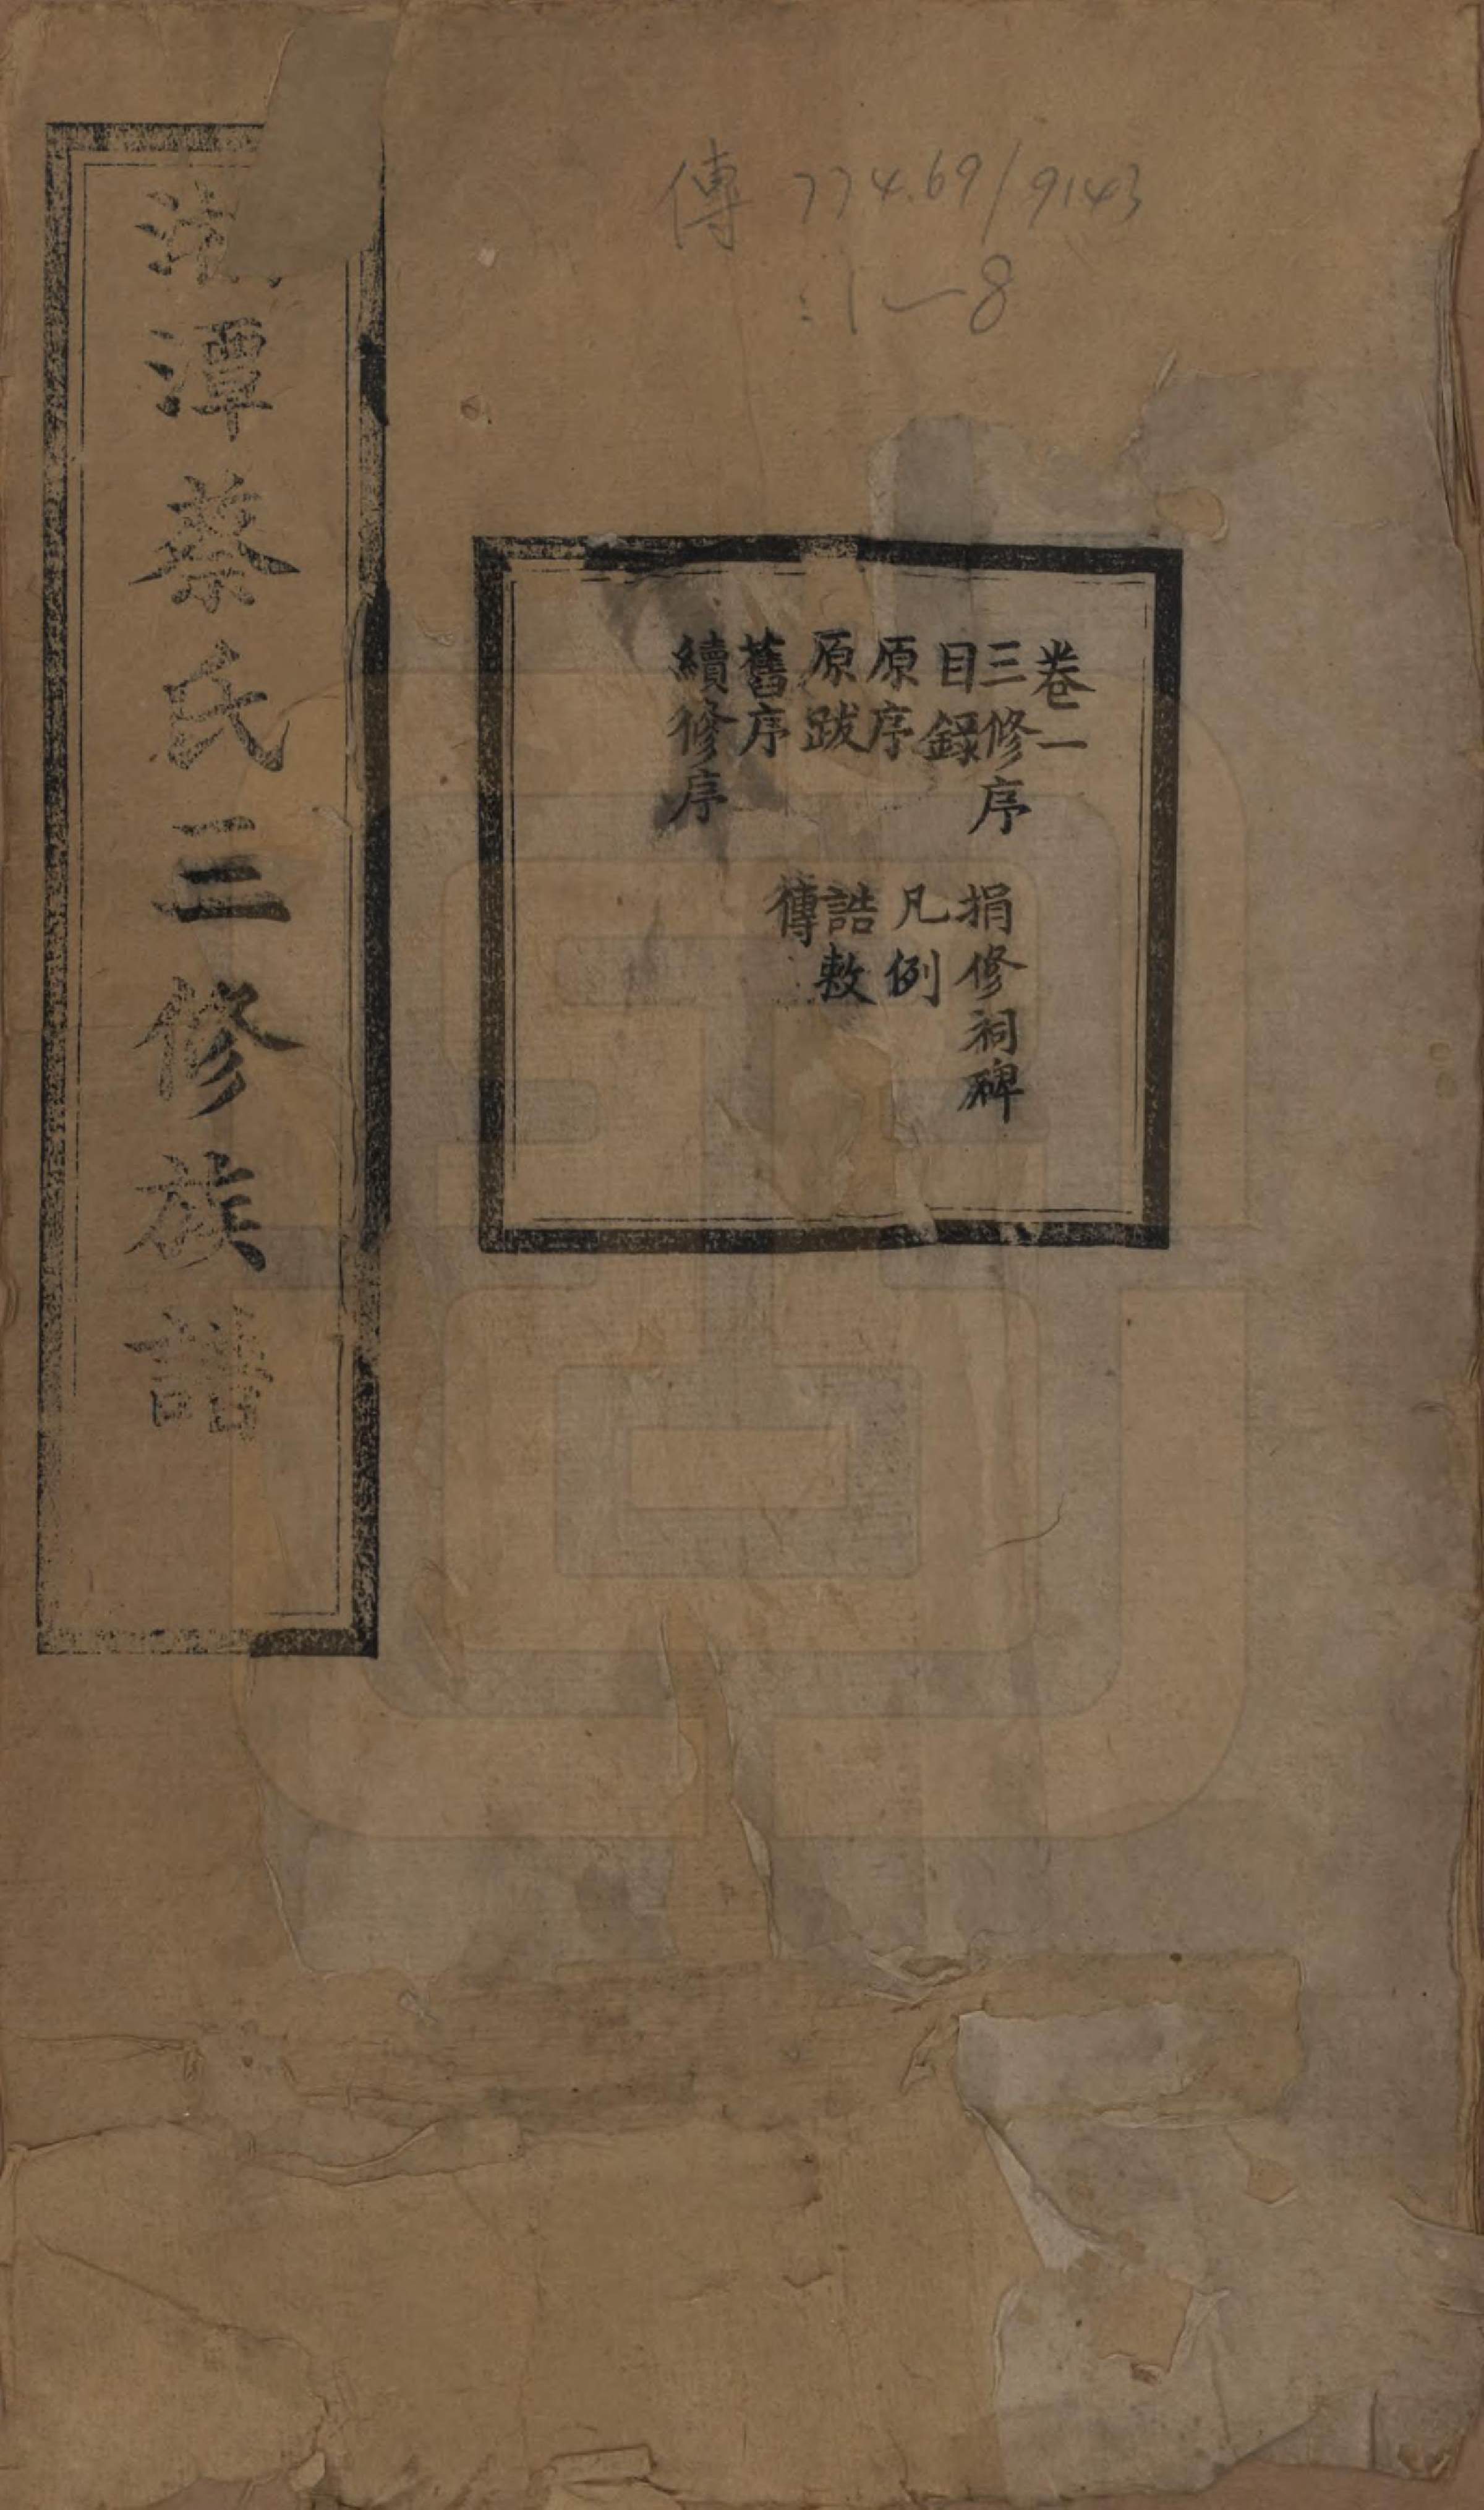 傳 774.69/9143
:1—8
卷一
三修序
目錄
原序
原跋
舊序
續修序
捐修祠碑
凡例
誥敕
傳
潭蔡氏三修族譜